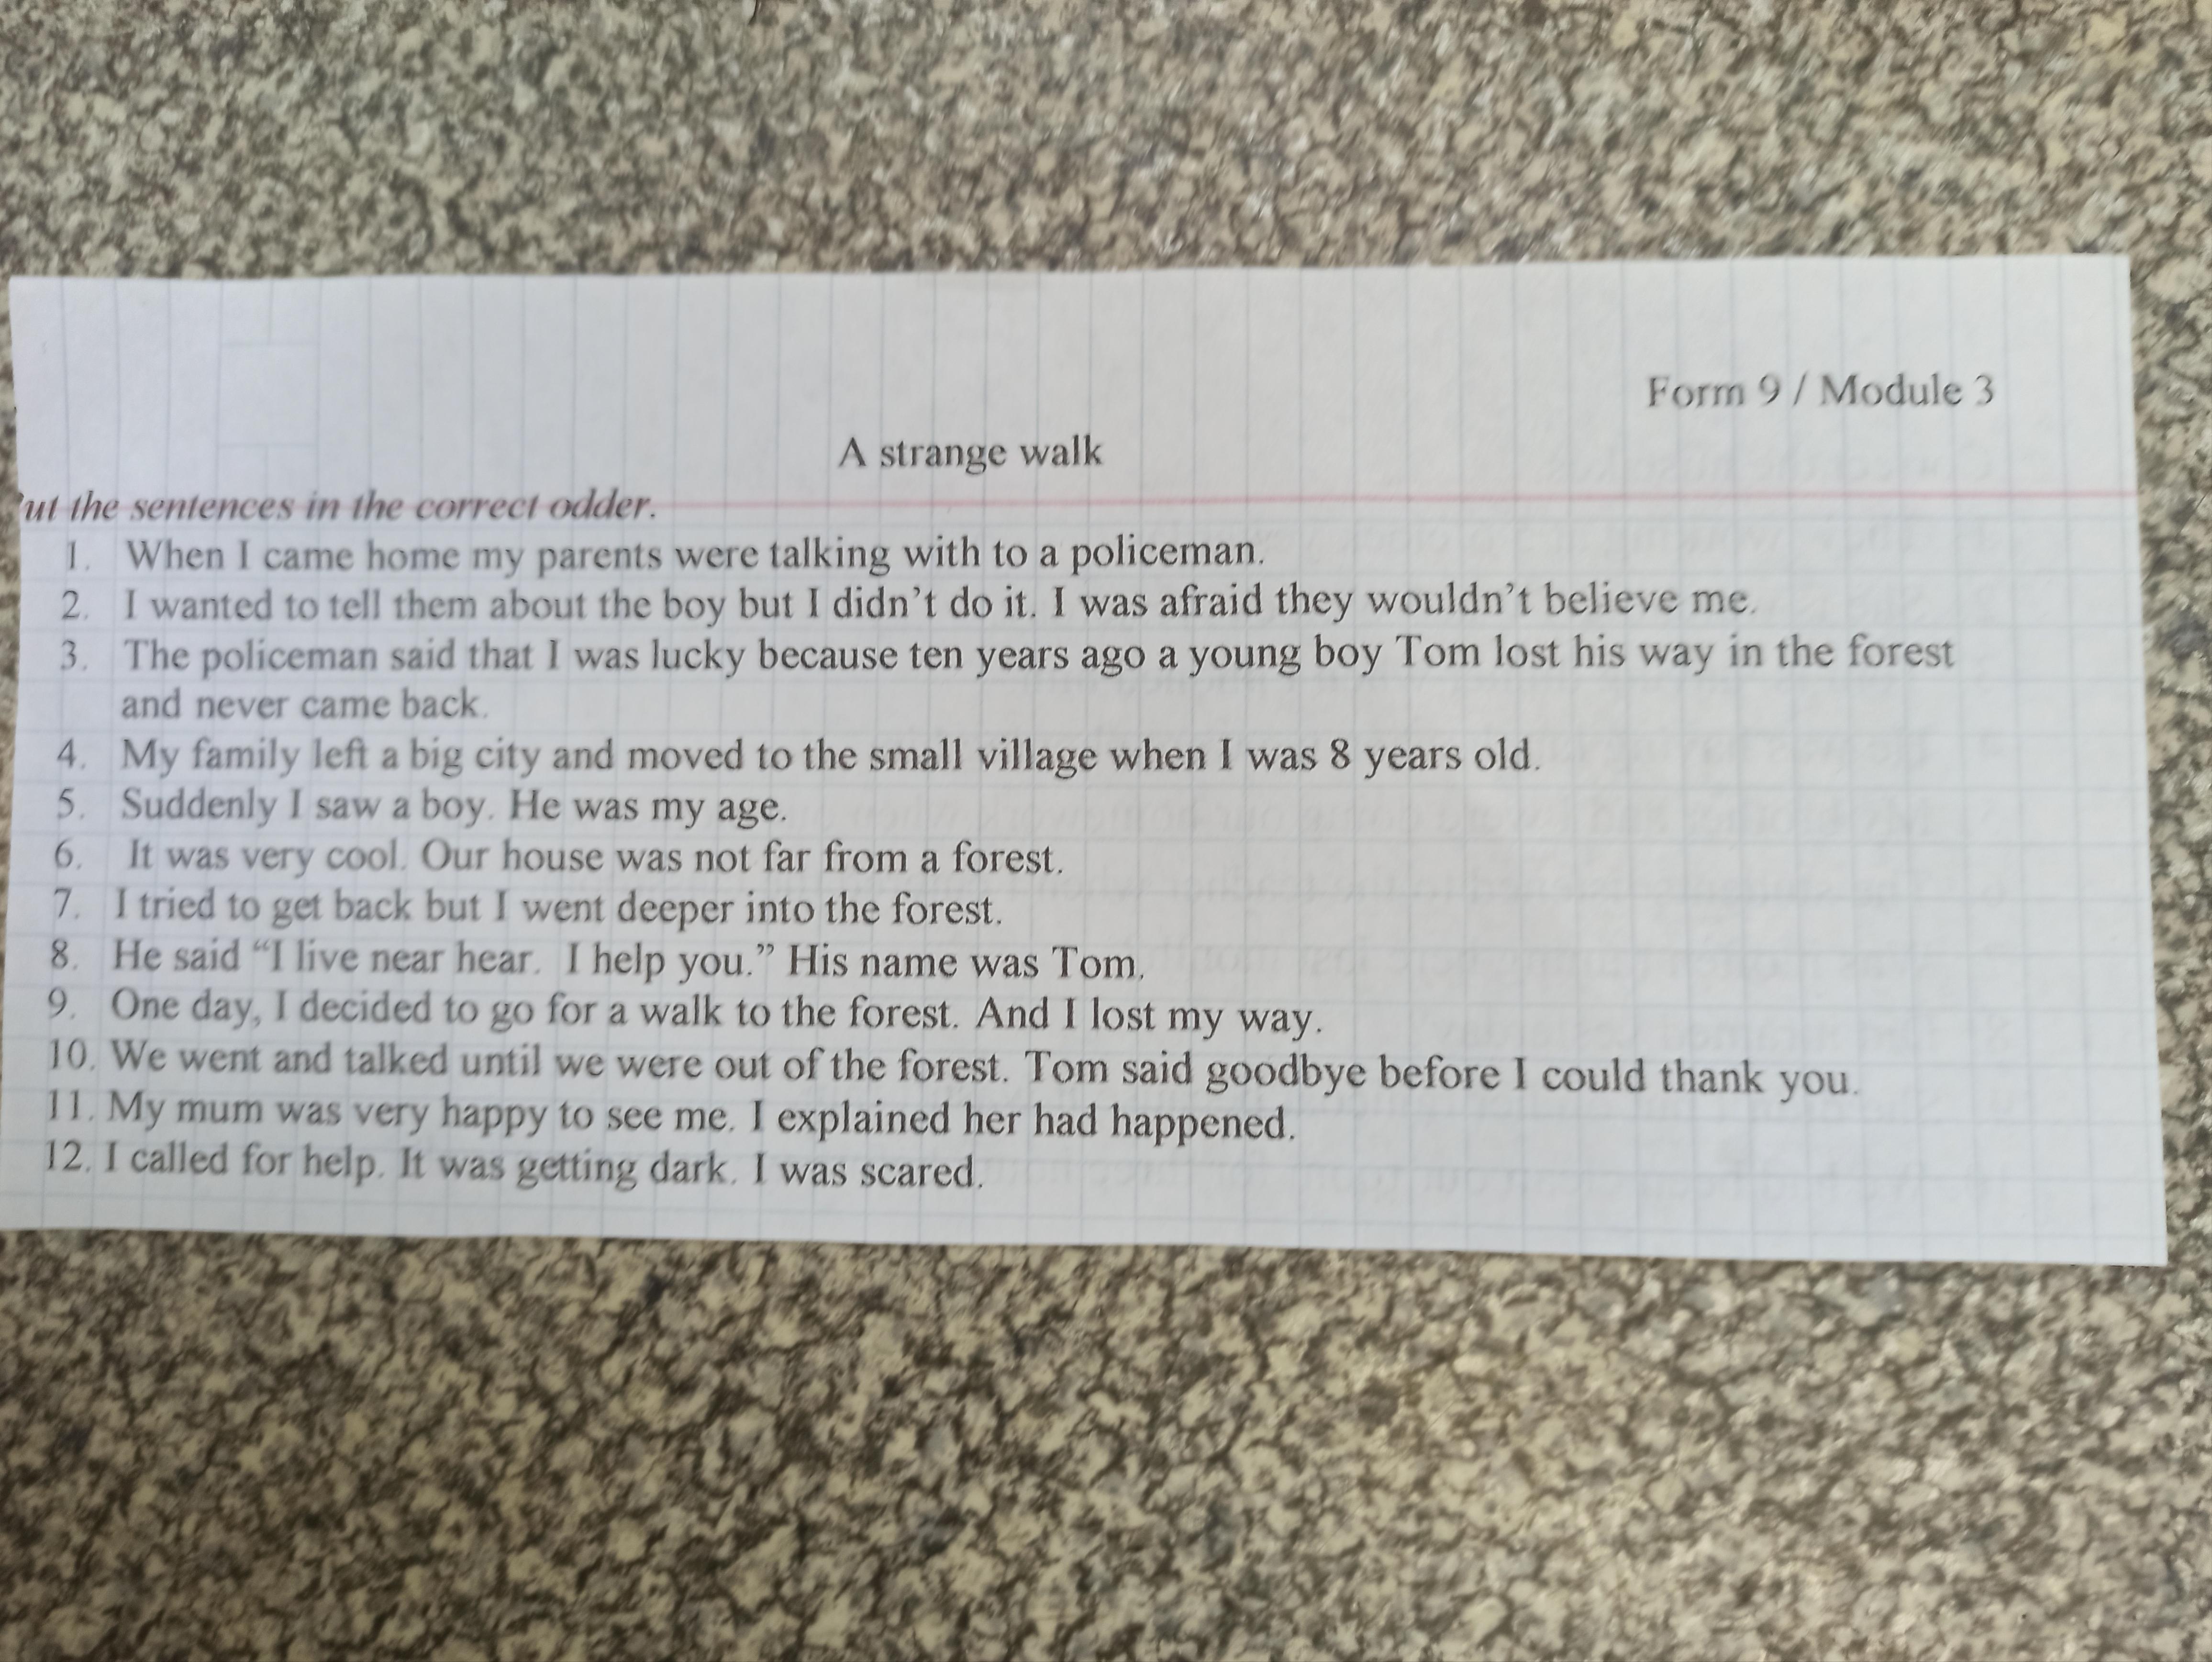 Form 9 / Module 3
A strange walk
ut the sentences in the correct odder.
1. When I came home my parents were talking with to a policeman.
2. I wanted to tell them about the boy but I didn't do it. I was afraid they wouldn't believe me.
3. The policeman said that I was lucky because ten years ago a young boy Tom lost his way in the forest
and never came back.
4. My family left a big city and moved to the small village when I was 8 years old.
5. Suddenly I saw a boy. He was my age.
6. It was very cool. Our house was not far from a forest.
7. I tried to get back but I went deeper into the forest.
8. He said “I live near hear. I help you.” His name was Tom.
9. One day, I decided to go for a walk to the forest. And I lost my way.
10. We went and talked until we were out of the forest. Tom said goodbye before I could thank you.
11. My mum was very happy to see me. I explained her had happened.
12. I called for help. It was getting dark. I was scared.